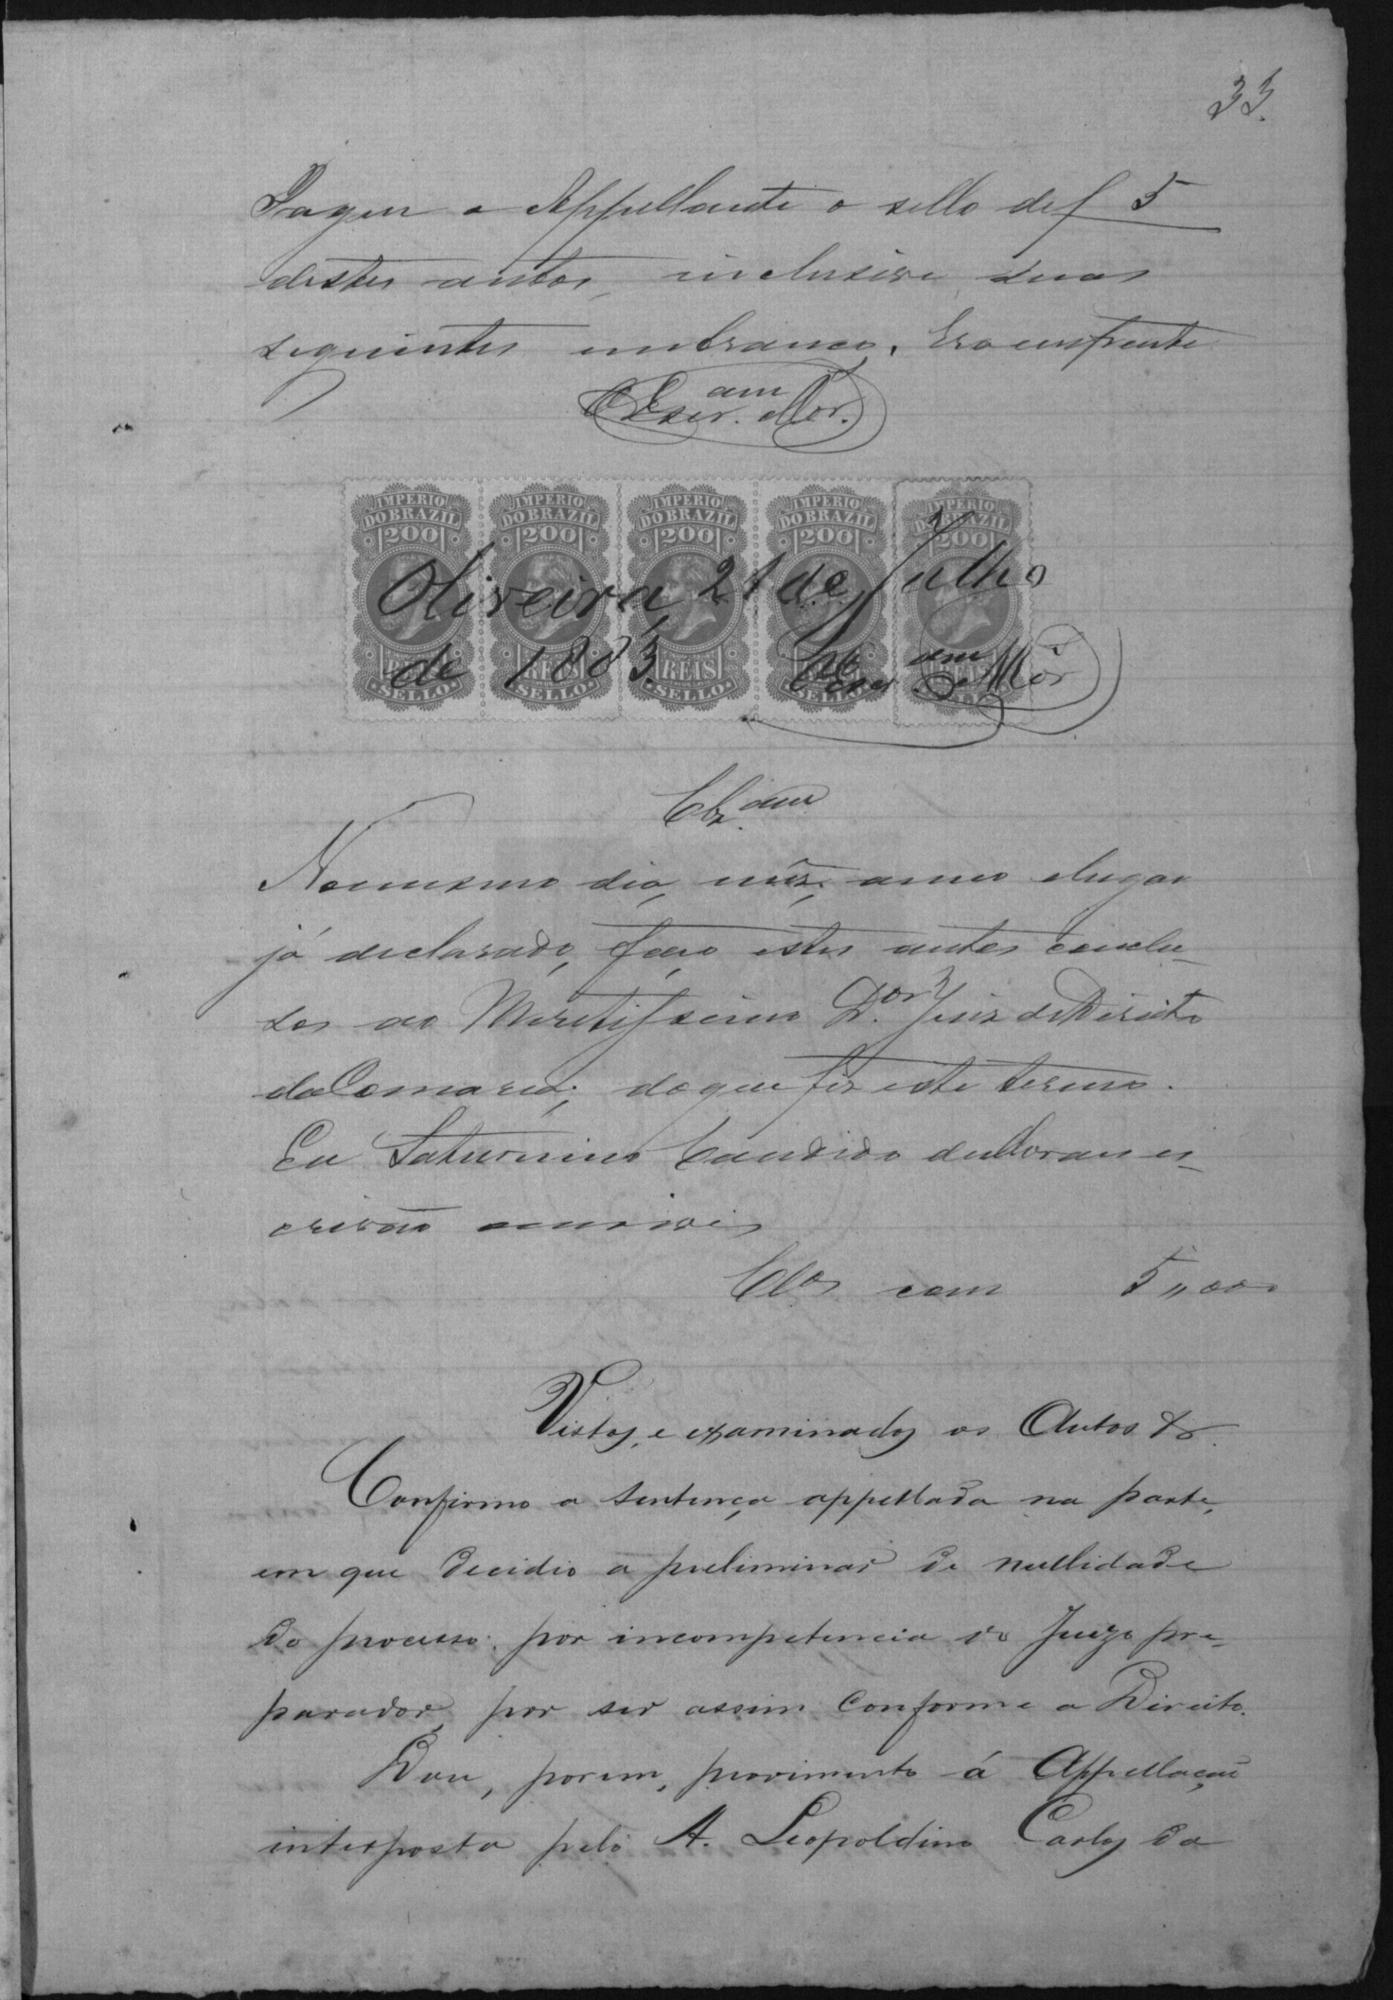 33.
Pagou o Appellante o sello de f 5
destes autos, inclusive duas
seguintes em branco. Era em frente
O Escr. am Mor.
IMPERIO DO BRAZIL 200 RÉIS SELLO
IMPERIO DO BRAZIL 200 RÉIS SELLO
IMPERIO DO BRAZIL 200 RÉIS SELLO
IMPERIO DO BRAZIL 200 RÉIS SELLO
IMPERIO DO BRAZIL 200 RÉIS SELLO
Oliveira, 21 de Julho
de 1883.
Clz.am
No mesmo dia, mez, anno e lugar
já declarado, faço estes autos conclu-
sos ao Meretissimo Dor. Juiz de Direito
da Comarca; do que fiz este termo.
Eu Saturnino Candido de Moraes es-
crivão escrevi
Clos com 5,,000
Vistos, e examinados os Autos &.
Confirmo a sentença appellada na parte,
em que decidio a preliminar de nullidade
do processo por incompetencia do Juizo pre-
parador, por ser assim conforme a Direito.
Dou, porem, provimento á Appellação
interposta pelo A. Leopoldino Carlos da